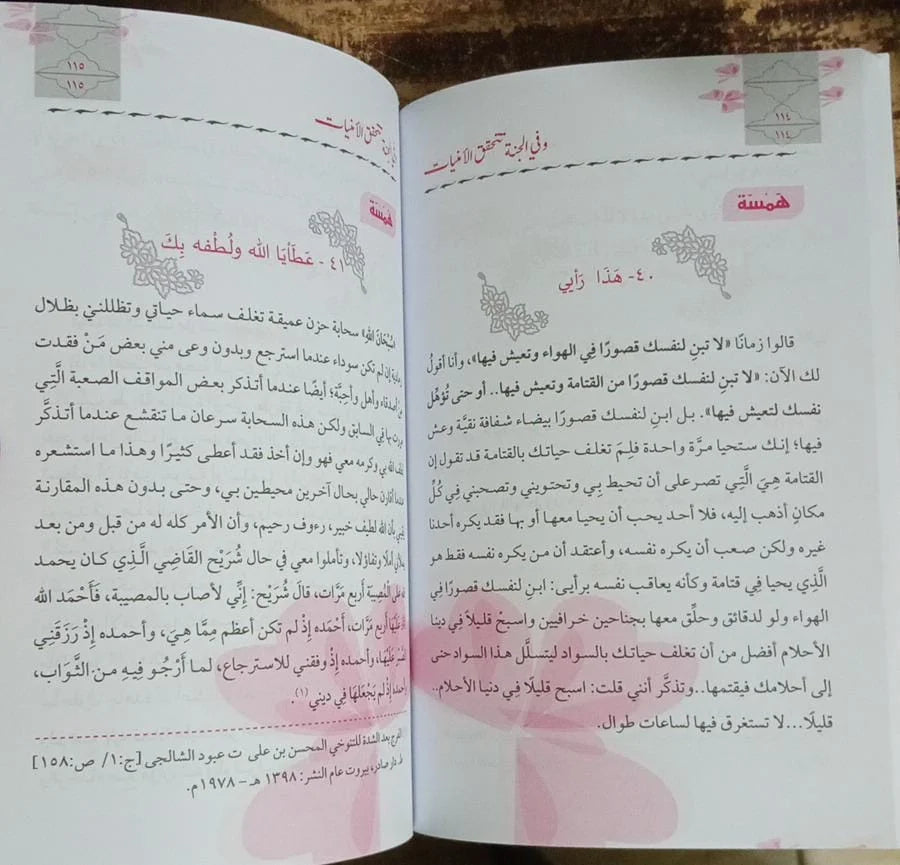 ١١٤
١١٤
وفي الجنة تتحقق الأمنيات
هَمْسَة
٤٠- هَذَا رَأيي
قالوا زمانًا «لا تبنِ لنفسك قصورًا فِي الهواء وتعيش فيها»، وأنا أقولُ
لك الآن: «لا تبنِ لنفسك قصورًا من القتامة وتعيش فيها.. أو حتى تُؤهِّل
نفسك لتعيش فيها». بل ابنِ لنفسك قصورًا بيضاء شفافة نقيَّة وعش
فيها؛ إنك ستحيا مرَّة واحدة فلِمَ تغلف حياتك بالقتامة قد تقول إن
القتامة هِيَ الَّتِي تصر على أن تحيط بِي وتحتويني وتصحبني فِي كُلِّ
مكانٍ أذهب إليه، فلا أحد يحب أن يحيا معها أو بها فقد يكره أحدنا
غيره ولكن صعب أن يكره نفسه، وأعتقد أن من يكره نفسه فقط هو
الَّذي يحيا فِي قتامة وكأنه يعاقب نفسه برأيى: ابنِ لنفسك قصورًا فِي
الهواء ولو لدقائق وحلِّق معها بجناحين خرافيين واسبحْ قليلًا فِي دينا
الأحلام أفضل من أن تغلف حياتك بالسواد ليتسلَّل هذا السواد حتى
إلى أحلامك فيقتمها..وتذكَّر أنني قلت: اسبح قليلًا فِي دنيا الأحلام..
قليلًا...لا تستغرق فيها لساعات طوال.
١١٥
١١٥
تتحقق الأمنيات
هَمْسَة
٤١- عَطَاْيَا الله ولُطْفه بِكَ
«سُبْحَانَ الله» سحابة حزن عميقة تغلف سماء حياتي وتظللني بظلال
إن لم تكن سوداء عندما استرجع وبدون وعى مني بعض مَنْ فقدت
من أصدقاء وأهل وأحِبَّة؛ أيضًا عندما أتذكر بعض المواقف الصعبة الَّتِي
مررت بها في السابق ولكن هذه السحابة سرعان ما تنقشع عندما أتذكَّر
لطف الله بي وكرمه معي فهو وإن أخذ فقد أعطى كثيرًا وهذا ما استشعره
عندما أقارن حالي بحال آخرين محيطين بي، وحتى بدون هذه المقارنة
بأن الله لطيف خبير، رءوف رحيم، وأن الأمر كله له من قبل ومن بعد
أملًا وتفاؤلًا، وتأملوا معي في حال شُرَيْح القَاضِي الَّذِي كان يحمد
الله على المُصيبة أربع مَرَّات، قالَ شُرَيْح: إنِّي لأصاب بالمصيبة، فَأَحْمَد الله
عَلَيْهَا أربع مَرَّات، أَحْمَده إذْ لم تكن أعظم مِمَّا هِيَ، وأحمده إذْ رَزَقَنِي
الصَّبْر عَلَيْهَا، وأحمده إذْ وفقني للاسترجاع، لما أرْجُو فِيهِ من الثَّوَاب،
وأحمده إذْ لم يَجْعَلهَا فِي ديني (١).
الفرج بعد الشدة للتنوخي المحسن بن على ت عبود الشالجى [ج:١/ ص:١٥٨]
ط دار صادر، بيروت عام النشر: ١٣٩٨ هـ – ١٩٧٨م.